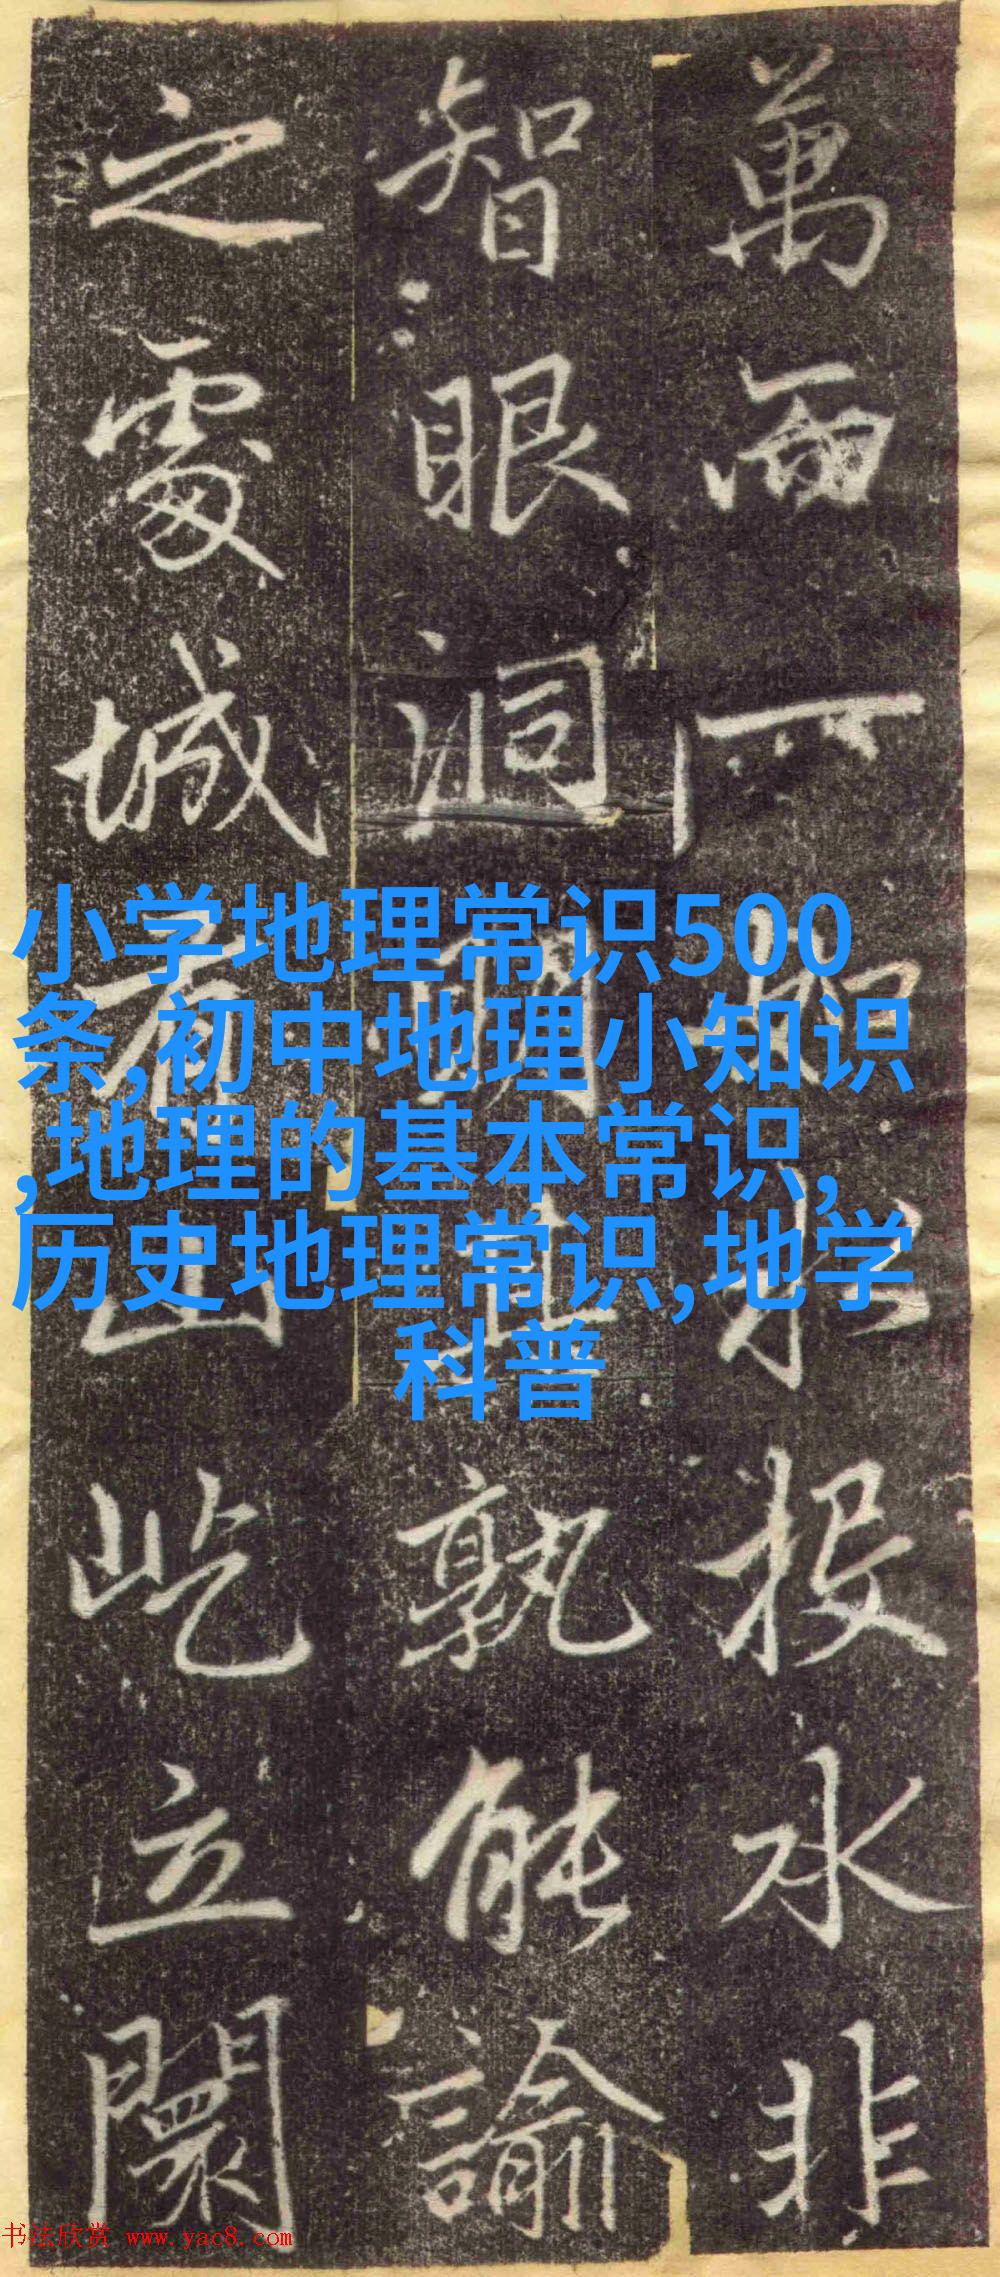 萬而一
如水投水非
智眼洞
明且孰能諭
之處城
者山屹立闤
小学地理常识500
条,初中地理小知识
,地理的基本常识,
历史地理常识,地学
科普
书法欣赏 www.yac8.com